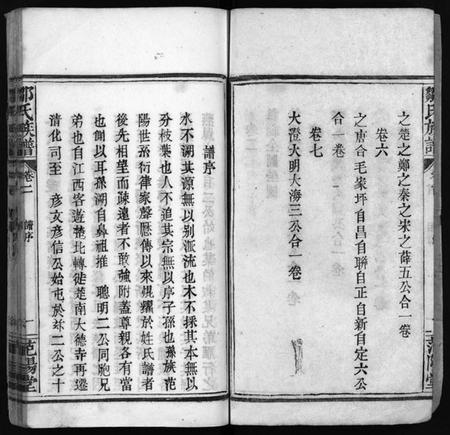 鄒氏族譜
之楚之鄭之秦之宋之薛五公合一卷
卷六
之唐合毛家坪自昌自聯自正自新自定六公
合一卷
卷七
大澄大明大海三公合一卷
范陽堂
譜序
水不溯其源無以別派流也木不採其本無以
分枝葉也人不追其宗無以序子孫也孫族范
陽世系衍律家聲歷傳以來規攫於姓氏譜者
後先相望而疎遠者不敢強附蓋尊親各有當
也側以耳孫溯自鼻祖推 聰明二公同胞兄
弟也自江西客遊楚北轉徙楚南大德寺再遷
清化司至 彦文彦信公始屯於 二公之十
鄒氏族譜
卷一
譜序
一
范陽堂